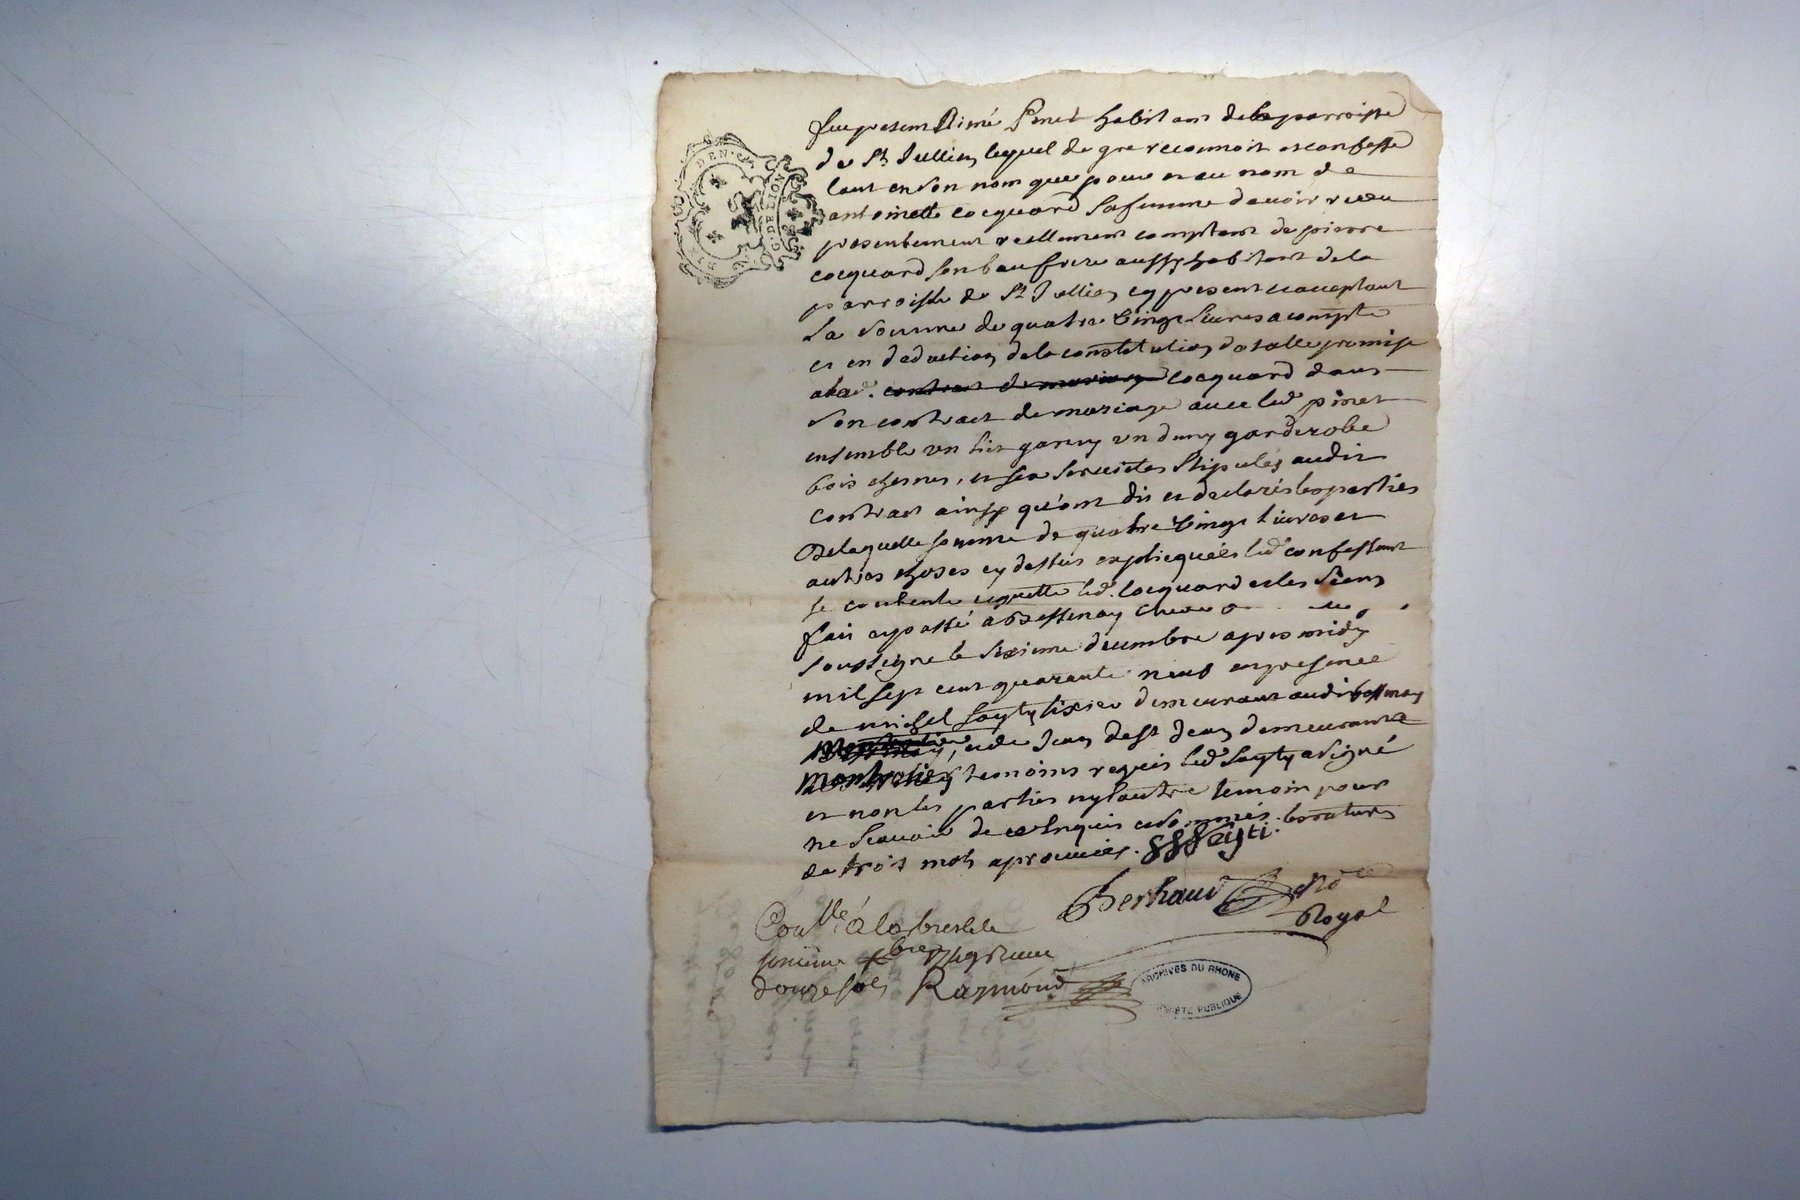 fut present Aimé Pinet habitant de la parroisse
de St Jullien lequel de gre reconnoit et confesse
tant en son nom que pour et au nom de
antoinette Cocquard sa femme davoir receu
presentement reellement comptant de pierre
cocquard son beau frere aussy habitant de la
parroisse de St Jullien cy present et acceptant
la somme de quatre vingt livres a compte
et en deduction de la constitution dotalle promise
a lad. contract de mariage cocquard dans
son contract de mariage avec led pinet
ensemble un lict garny un demy garderobe
bois chesne, et six serviettes stipulés audit
contract ainsy qu'ont dit et declarés les parties
De laquelle somme de quatre vingt livres et
autres choses cy dessus explicquées led confessant
se contente et quitte led. Cocquard et les siens
fait et passé a Bessenay
soussigne le sixieme decembre apres midy
mil sept cent quarante neuf en presence
de michel Sayty tixier demeurant audit bessenay
et de Jean de St Jean demeurant a
Montrotier temoins requis led Sayty a signé
et non les parties ny lautre temoin pour
ne scavoir de ce enquis et sommés. les ratures
de trois mots aprouvées. Seyti.
Berthaud No^re
Royal
Con^lle a la bresle le
xbre 1749 Receu
douze sols Raymond
DEN.
G. DE LION
ARCHIVES DU RHONE
PUBLIQUE